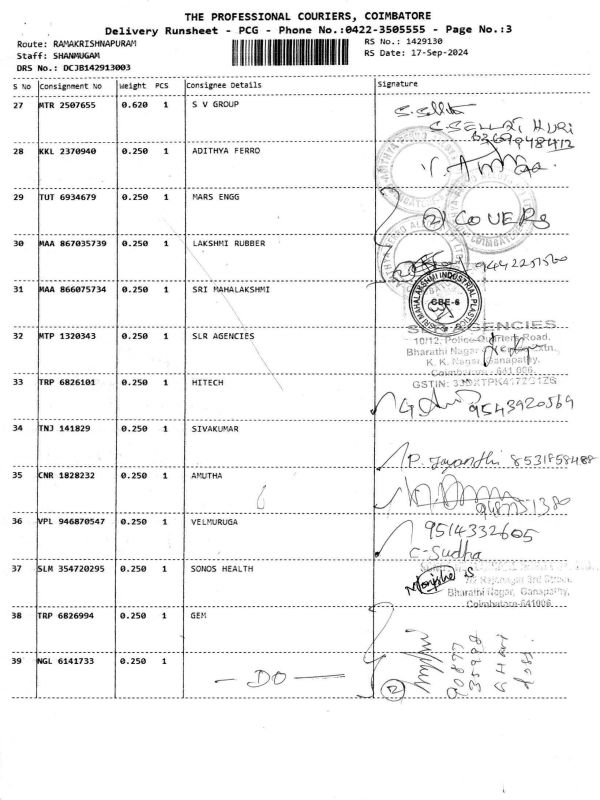 THE PROFESSIONAL COURIERS, COIMBATORE
Delivery Runsheet - PCG - Phone No.:0422-3505555 - Page No.:3
Route: RAMAKRISHNAPURAM
RS No.: 1429130
Staff: SHANMUGAM
RS Date: 17-Sep-2024
DRS No.: DCJB142913003
S No Consignment No Weight PCS Consignee Details Signature
27 MTR 2507655 0.620 1 S V GROUP
28 KKL 2370940 0.250 1 ADITHYA FERRO
29 TUT 6934679 0.250 1 MARS ENGG
② COVERS
30 MAA 867035739 0.250 1 LAKSHMI RUBBER
31 MAA 866075734 0.250 1 SRI MAHALAKSHMI
SRI MAHALAKSHMI INDUSTRIAL PLASTICS
CBE-6
32 MTP 1320343 0.250 1 SLR AGENCIES
SLR AGENCIES
10/12, Police Quarters Road,
Bharathi Nagar Extn.,
K. K. Nagar, Ganapathy,
Coimbatore - 641 006.
33 TRP 6826101 0.250 1 HITECH
GSTIN:
9543920569
34 TNJ 141829 0.250 1 SIVAKUMAR
P. Jayanthi 8531858488
35 CNR 1828232 0.250 1 AMUTHA
36 VPL 946870547 0.250 1 VELMURUGA
9514332605
C-Sudha
37 SLM 354720295 0.250 1 SONOS HEALTH
Rajanagar 3rd Street,
Bharathi Nagar, Ganapathy,
Coimbatore-641006
38 TRP 6826994 0.250 1 GEM
39 NGL 6141733 0.250 1
- DO -
②